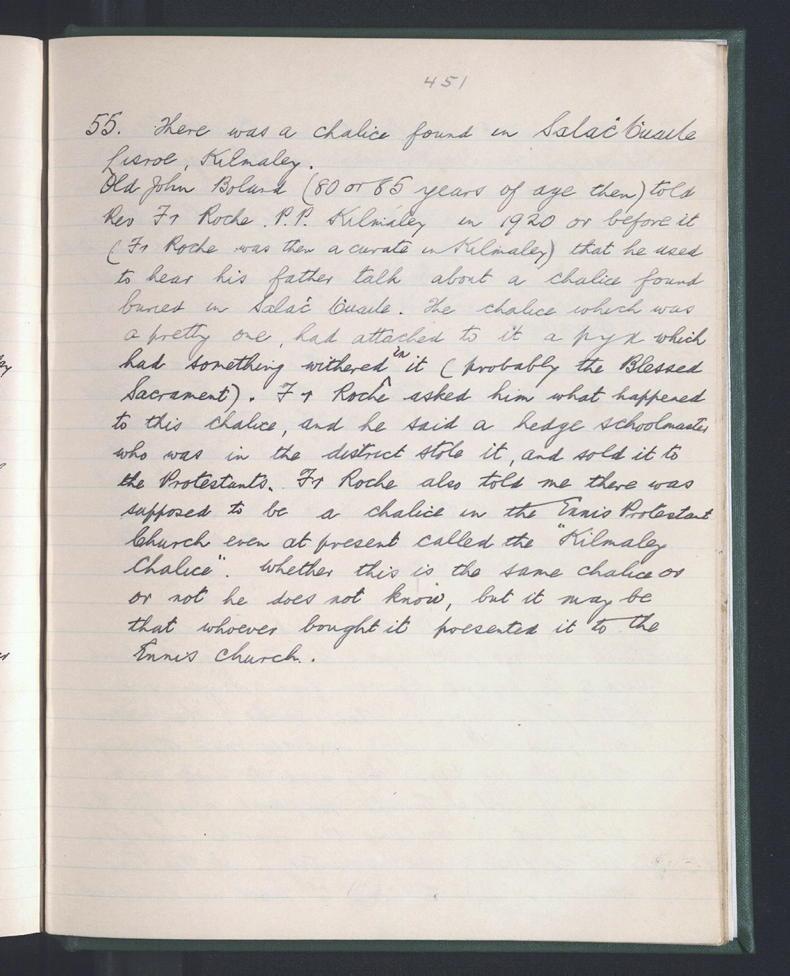 451
55. There was a chalice found in Salać Cuaile
Lisroe, Kilmaley.
Old John Boland (80 or 85 years of age then) told
Rev Fr Roche. P.P. Kilmaley in 1920 or before it
(Fr Roche was then a curate in Kilmaley) that he used
to hear his father talk about a chalice found
buried in Salać Cuaile. The chalice which was
a pretty one, had attached to it a pyx which
had something withered in it (probably the Blessed
Sacrament). Fr Roche asked him what happened
to this chalice, and he said a hedge schoolmaster
who was in the district stole it, and sold it to
the Protestants. Fr Roche also told me there was
supposed to be a chalice in the Ennis Protestant
Church even at present called the "Kilmaley
Chalice". Whether this is the same chalice or
or not he does not know, but it may be
that whoever bought it presented it to the
Ennis church.